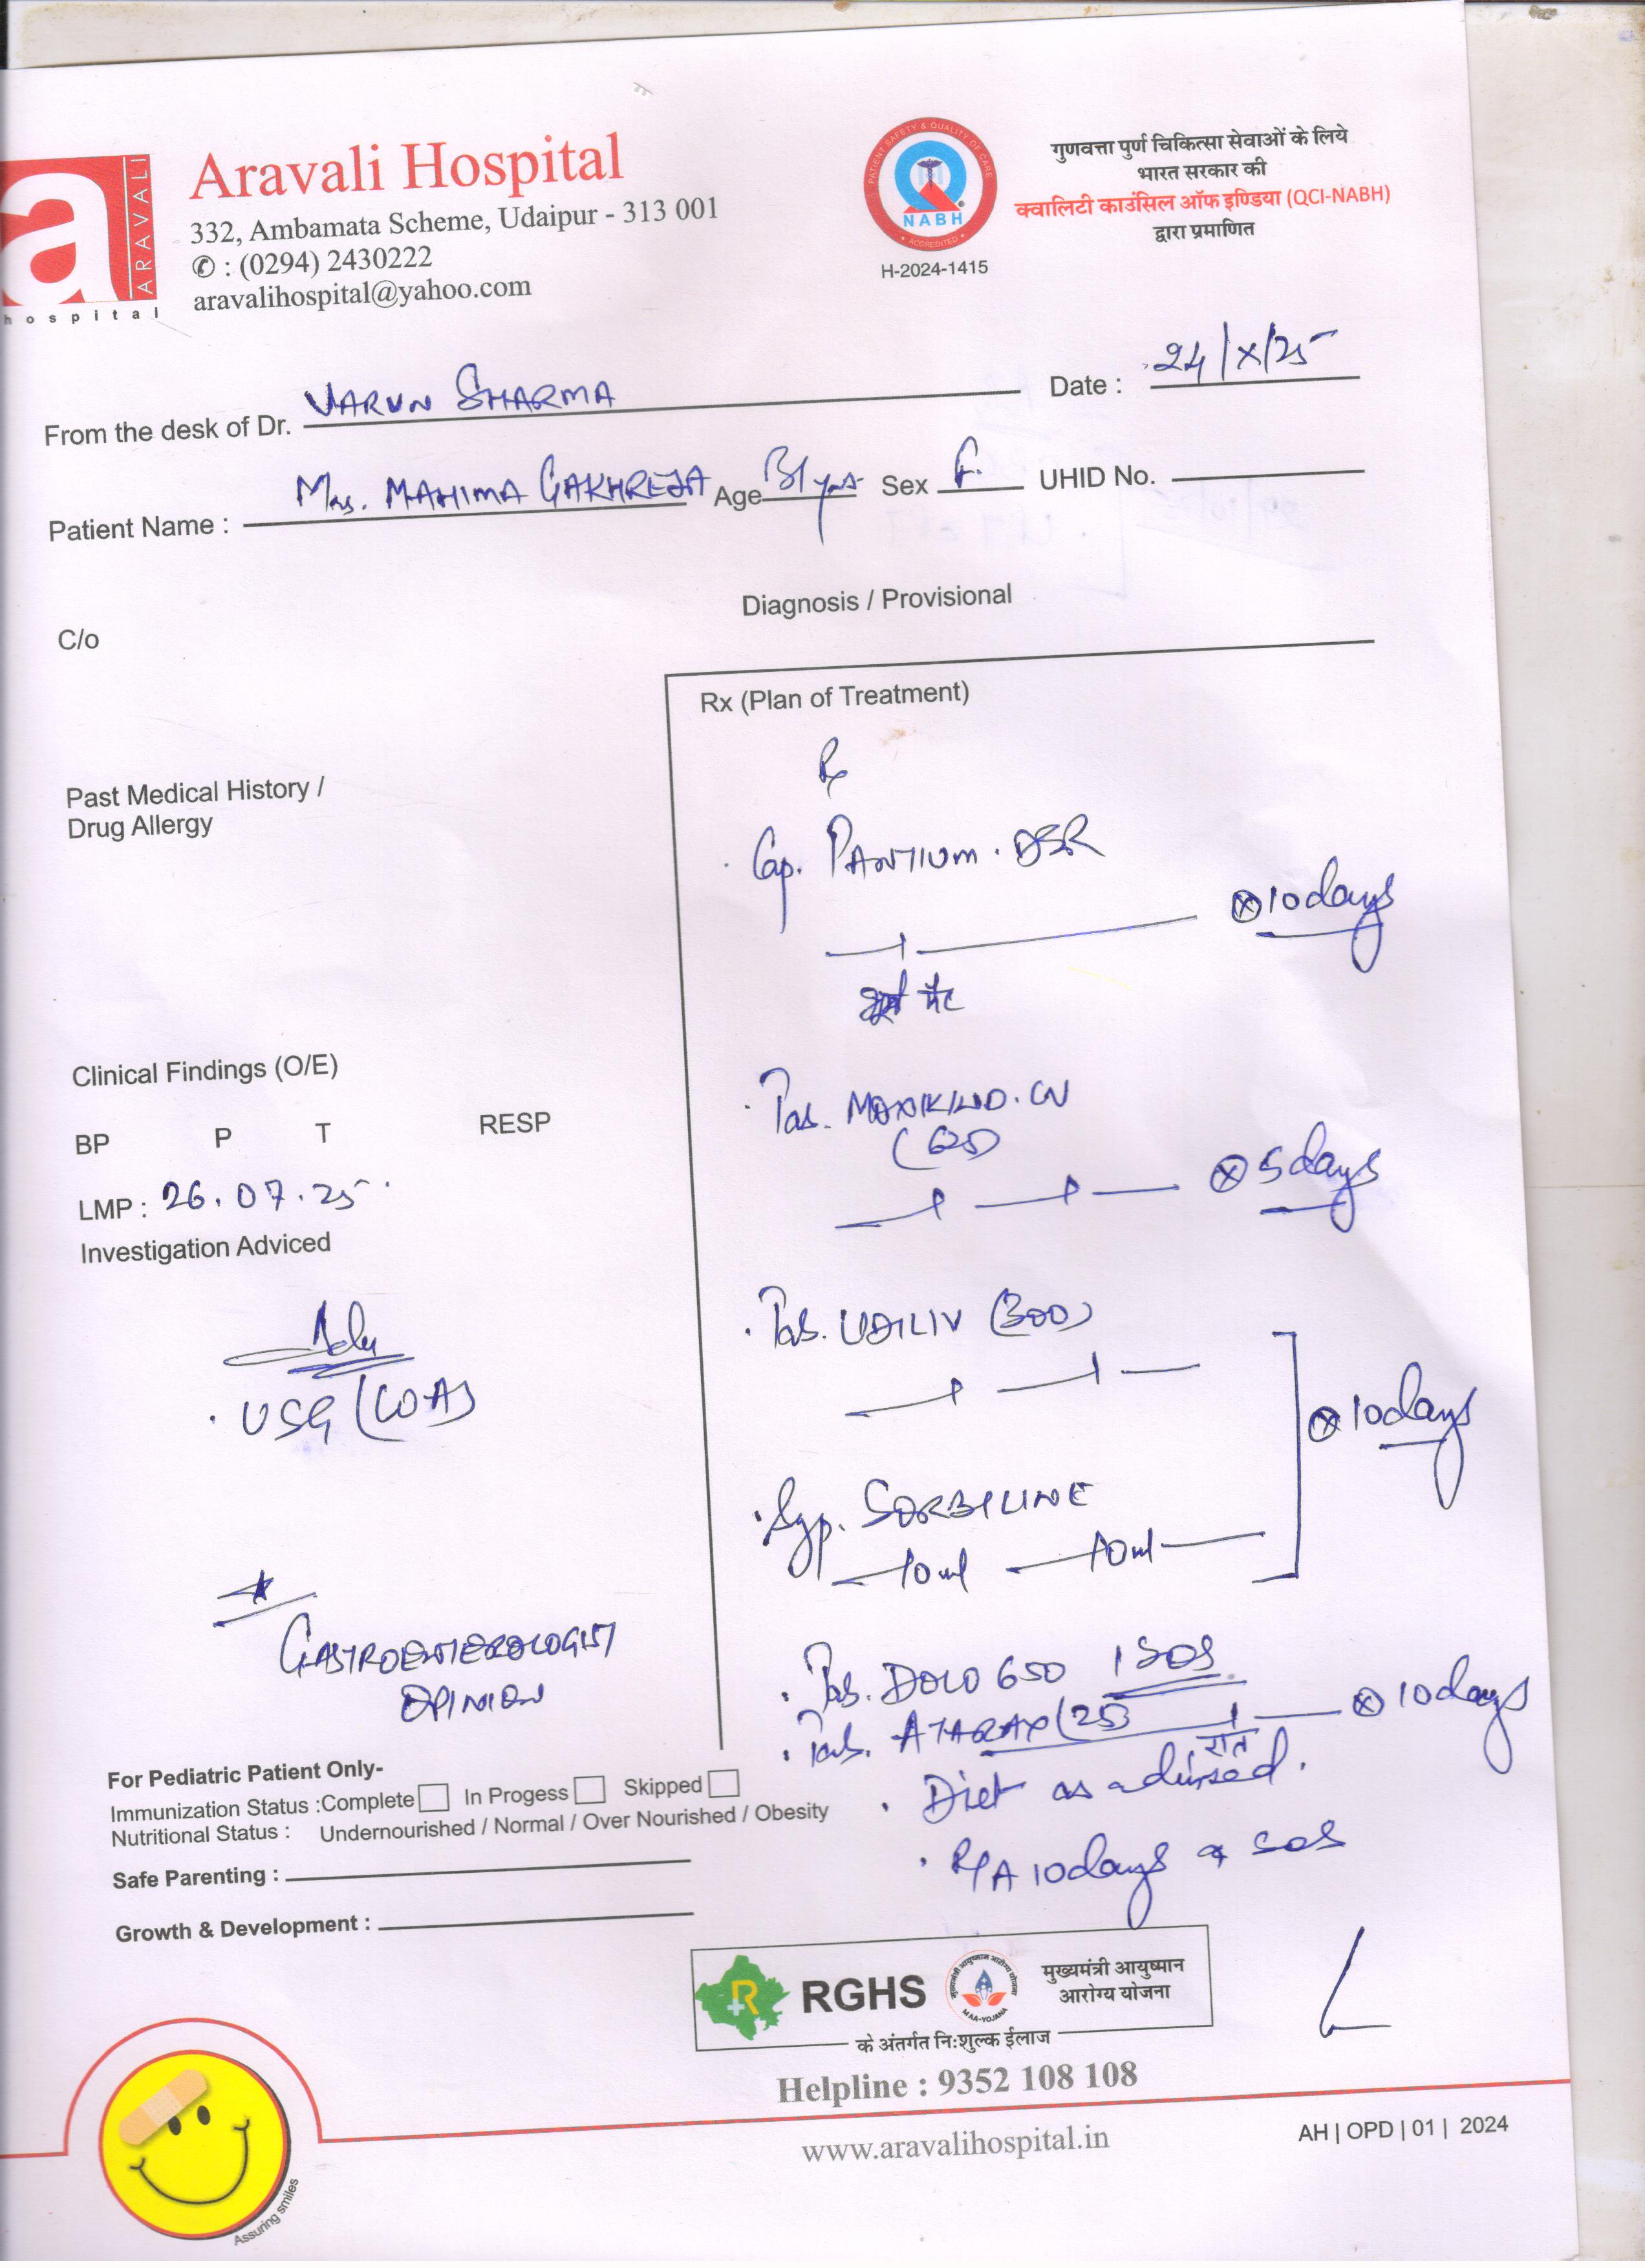 ARAVALI
hospital
Aravali Hospital
332, Ambamata Scheme, Udaipur - 313 001
✆ : (0294) 2430222
aravalihospital@yahoo.com
PATIENT SAFETY & QUALITY OF CARE
NABH
ACCREDITED
H-2024-1415
गुणवत्ता पुर्ण चिकित्सा सेवाओं के लिये
भारत सरकार की
क्वालिटी काउंसिल ऑफ इण्डिया (QCI-NABH)
द्वारा प्रमाणित
From the desk of Dr. VARUN SHARMA Date : 24/X/25
Patient Name : Mrs. MAHIMA GAKHREJA Age 31 yrs Sex F. UHID No.
Diagnosis / Provisional
C/o
Rx (Plan of Treatment)
Rx
Past Medical History /
Drug Allergy
Cap. PANTIUM. DSR
⊗ 10 days
भूखे पेट
Clinical Findings (O/E)
BP P T RESP
LMP : 26.07.25
Investigation Adviced
Tab. MOXIKIND. CV
(625)
⊗ 5 days
Adv
USG (W-A)
Tab. UDILIV (300)
Syp. SORBILINE
10ml 10ml
⊗ 10 days
GASTROENTEROLOGIST
OPINION
Tab. DOLO 650 1 SOS
Tab. ATARAX (25) ⊗ 10 days
रात
Diet as advised.
R/A 10 days & SOS
For Pediatric Patient Only-
Immunization Status :Complete In Progess Skipped
Nutritional Status : Undernourished / Normal / Over Nourished / Obesity
Safe Parenting :
Growth & Development :
R
RGHS
MAA-YOJANA
मुख्यमंत्री आयुष्मान
आरोग्य योजना
के अंतर्गत नि:शुल्क ईलाज
Helpline : 9352 108 108
www.aravalihospital.in
AH | OPD | 01 | 2024
Assuring smiles